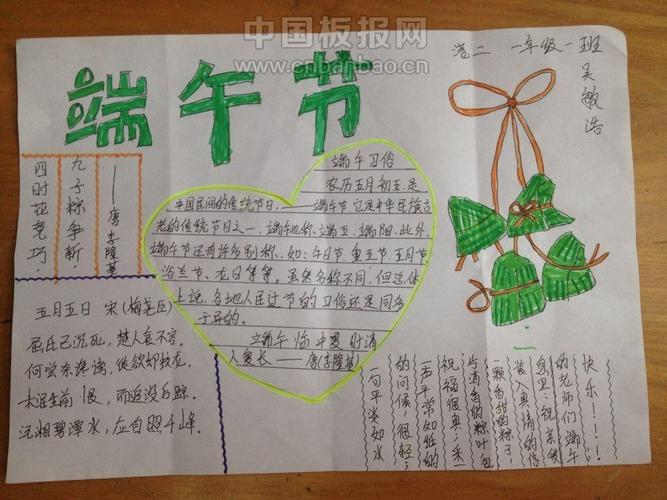 中国板报网
www.cnbanbao.cn
端午节
卷二 一年级一班
吴敏浩
四时花竞巧，
九子粽争新。
——唐 李隆基
端午习俗
农历五月初五，是
中国民间的传统节日——端午节，它是中华民族古
老的传统节日之一。端午也称端五，端阳。此外，
端午节还有许多别称，如：午日节、重五节、五月节、
浴兰节、
等等。虽然名称不同，但总体
上说，各地人民过节的习俗还是同多
于异的。
端午临中夏，时清
人复长——唐（李隆基）
五月五日 宋（梅尧臣）
屈氏已沉死，楚人哀不容。
何尝奈谗谤，徒欲却蛟龙。
未泯生前恨，而追没后踪。
沅湘碧潭水，应自照千峰。
快乐！！！
的老师们端午
息里：祝亲我
装入真情的信
一颗香甜的粽子，
片清香的粽叶包
祝福很真；采一
若平常如娃的
的问候很轻；
一句平淡如水